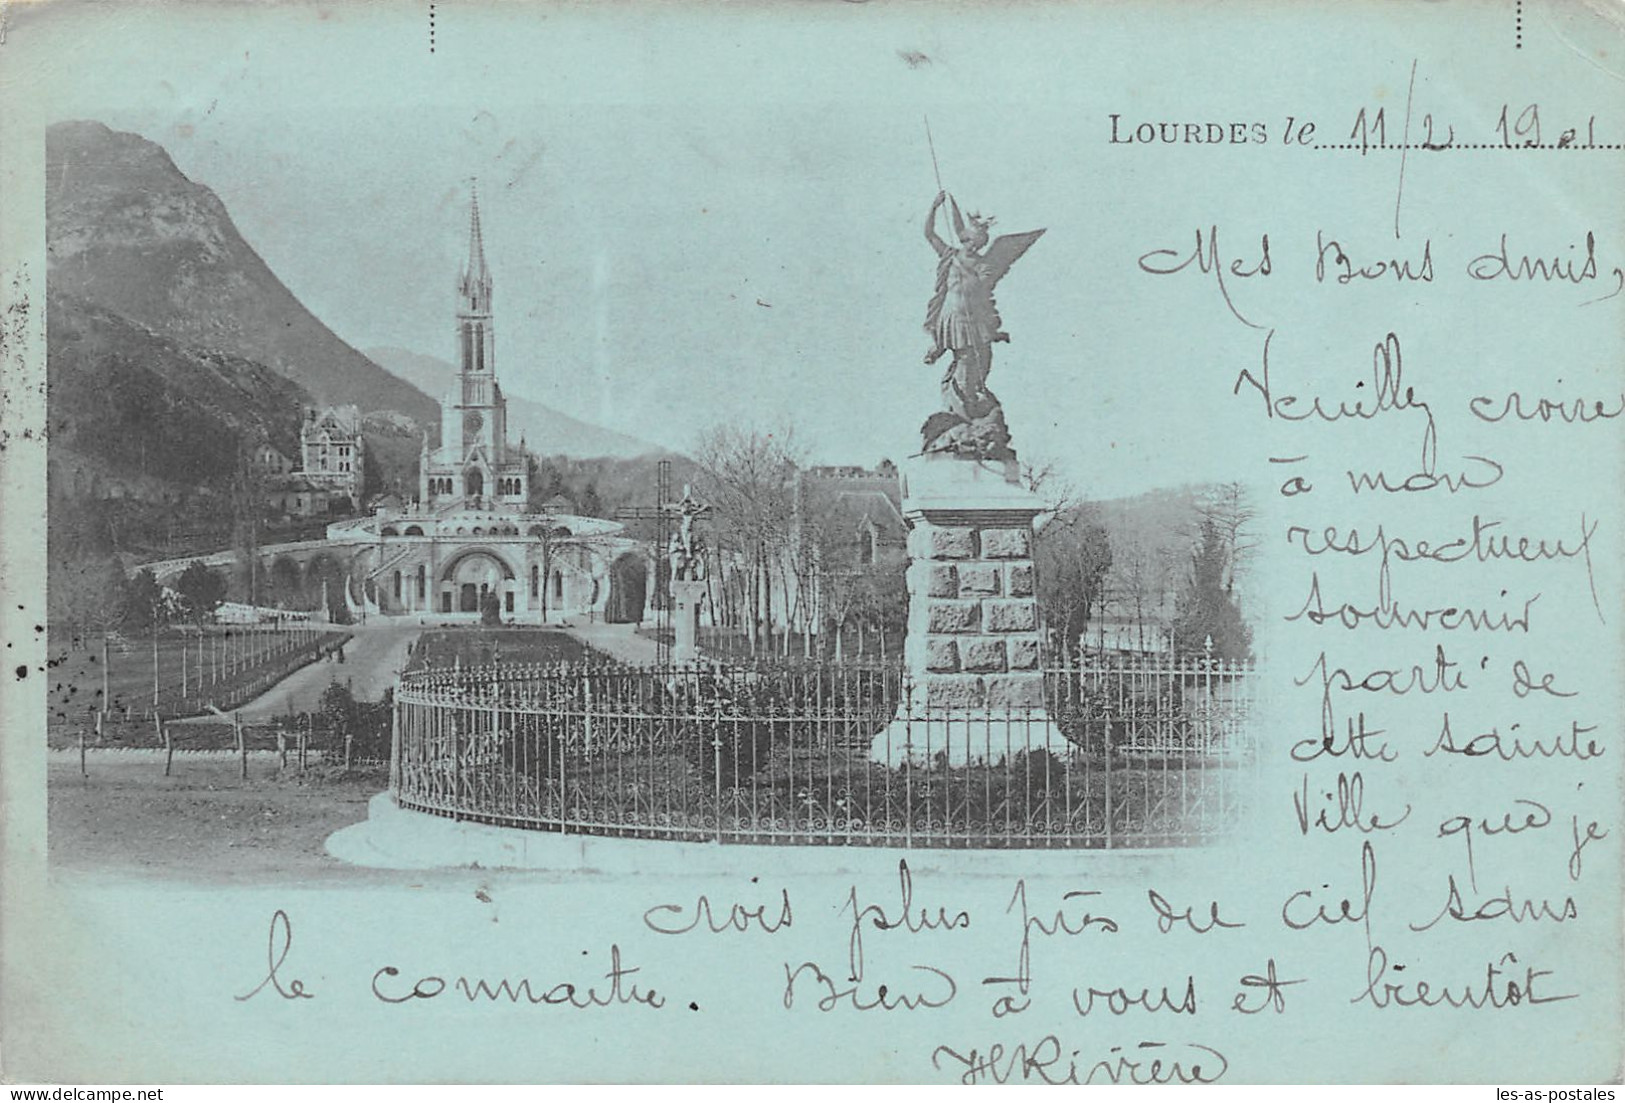 LOURDES le 11/2 1901
Mes Bons Amis,
Veuillez croire
à mon
respectueux
souvenir
parti de
cette Sainte
Ville que je
crois plus près du Ciel sans
le connaitre. Bien à vous et bientôt
HRivière
les-as-postales